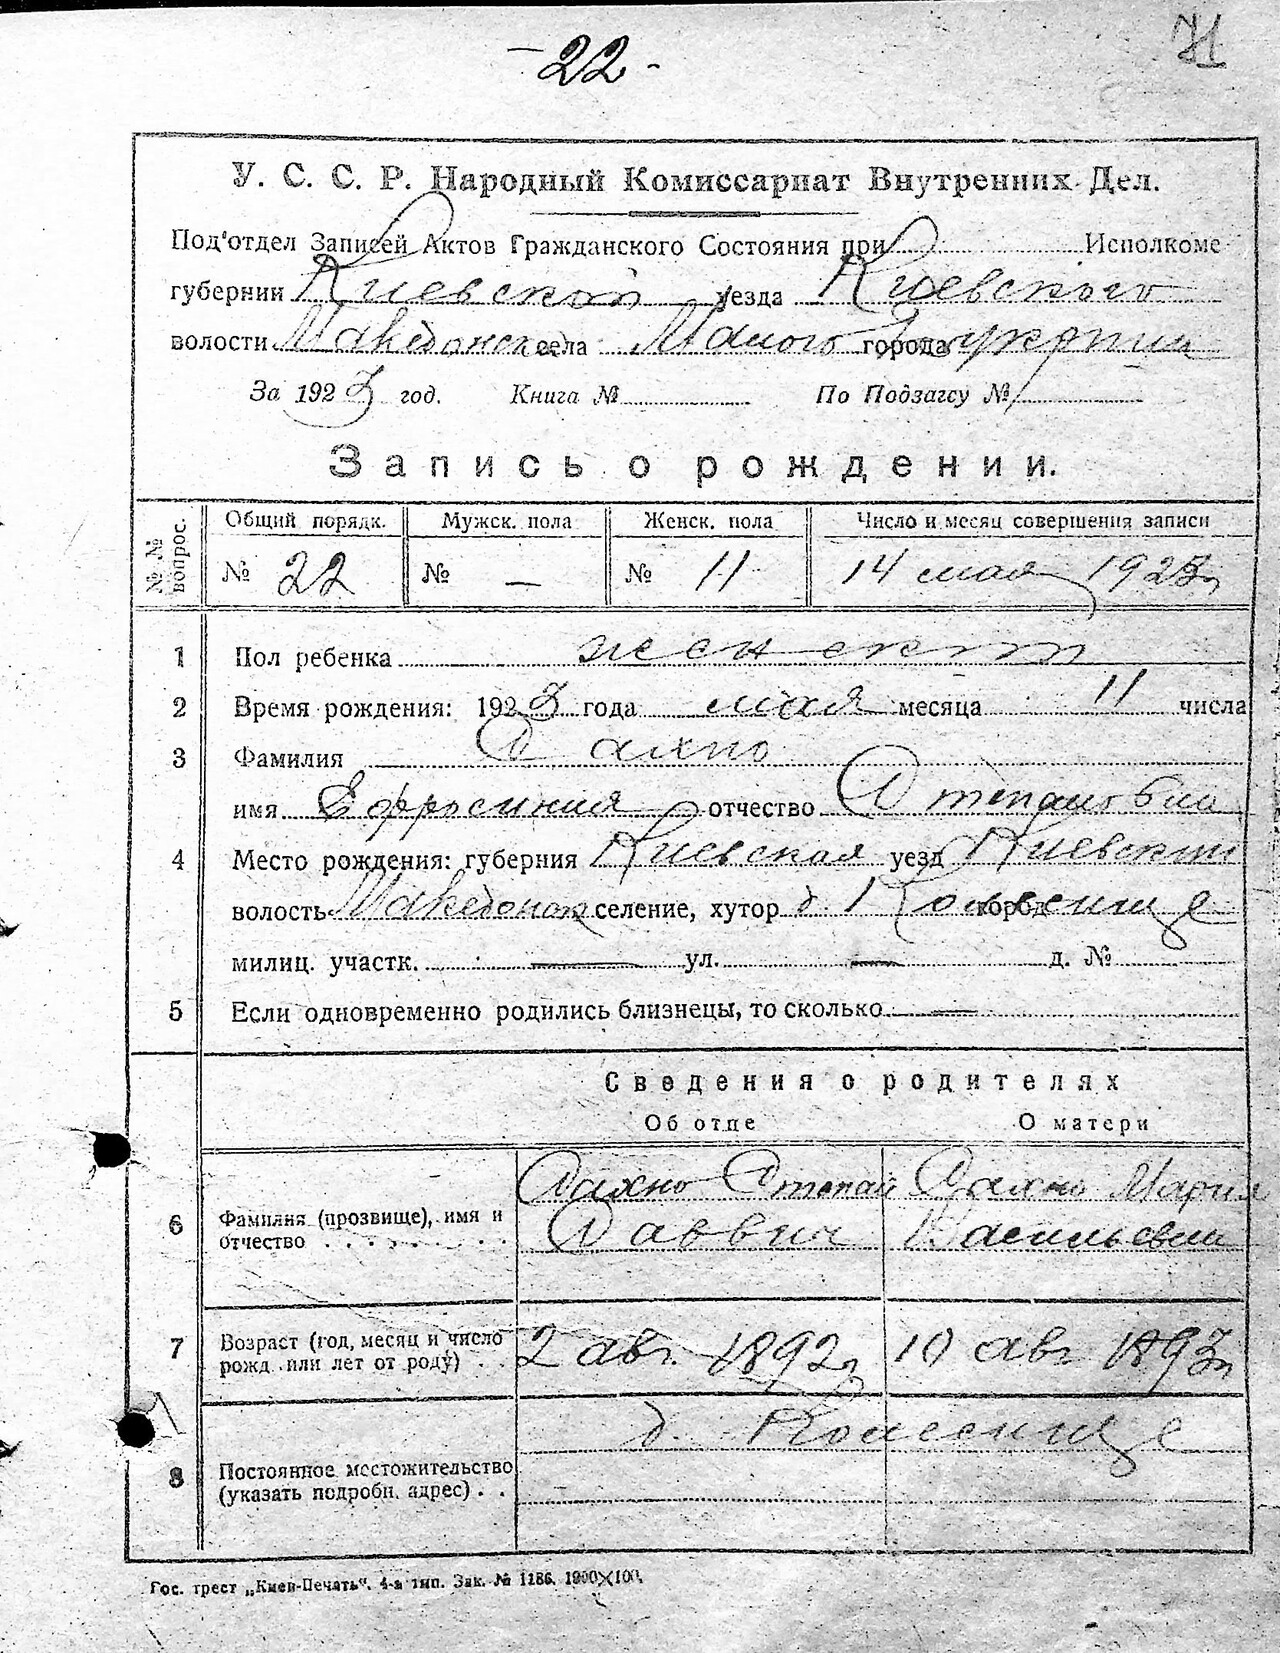 - 22 -
71
У. С. С. Р. Народный Комиссариат Внутренних Дел.
Под'отдел Записей Актов Гражданского Состояния при Исполкоме
губернии Киевской уезда Киевского
волости Македонск села Малого города Букрина
За 1923 год. Книга № По Подзагсу №
Запись о рождении.
№ № вопрос. Общий порядк. Мужск. пола Женск. пола Число и месяц совершения записи
№ 22 № — № 11 14 мая 1923 г
1 Пол ребенка женский
2 Время рождения: 1923 года мая месяца 11 числа
3 Фамилия Дахно
имя Ефросиния отчество Степановна
4 Место рождения: губерния Киевская уезд Киевский
волость Македонск селение, хутор д. город
милиц. участк. — ул. — д. №
5 Если одновременно родились близнецы, то сколько —
Сведения о родителях
Об отце О матери
Дахно Степан Дахно Мария
6 Фамилия (прозвище), имя и отчество . . . . . . . . Васильевна
7 Возраст (год, месяц и число рожд. или лет от роду) . . 2 авг. 1892 г 10 авг 1893 г
д.
8 Постоянное местожительство (указать подробн. адрес) . .
Гос. трест „Киев-Печать". 4-я тип. Зак. № 1186. 1900×100.